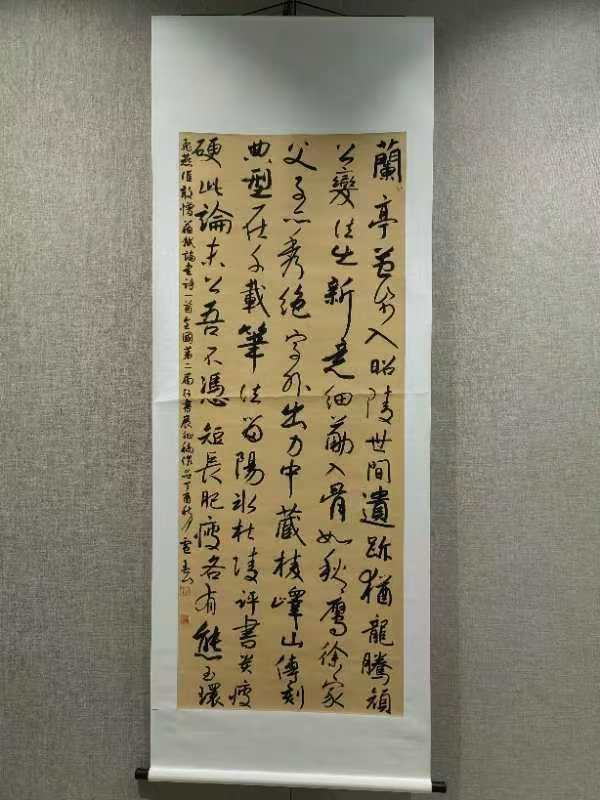 蘭亭茧紙入昭陵世間遺跡猶龍騰顏
公變法出新意細筋入骨如秋鷹徐家
父子亦秀絕字外出力中藏棱嶧山傳刻
典型在千載筆法留陽冰杜陵評書貴瘦
硬此論未公吾不憑短長肥瘦各有態玉環
飛燕誰敢憎蘇軾論書詩一首全國第二屆行書展征稿作品丁酉秋月